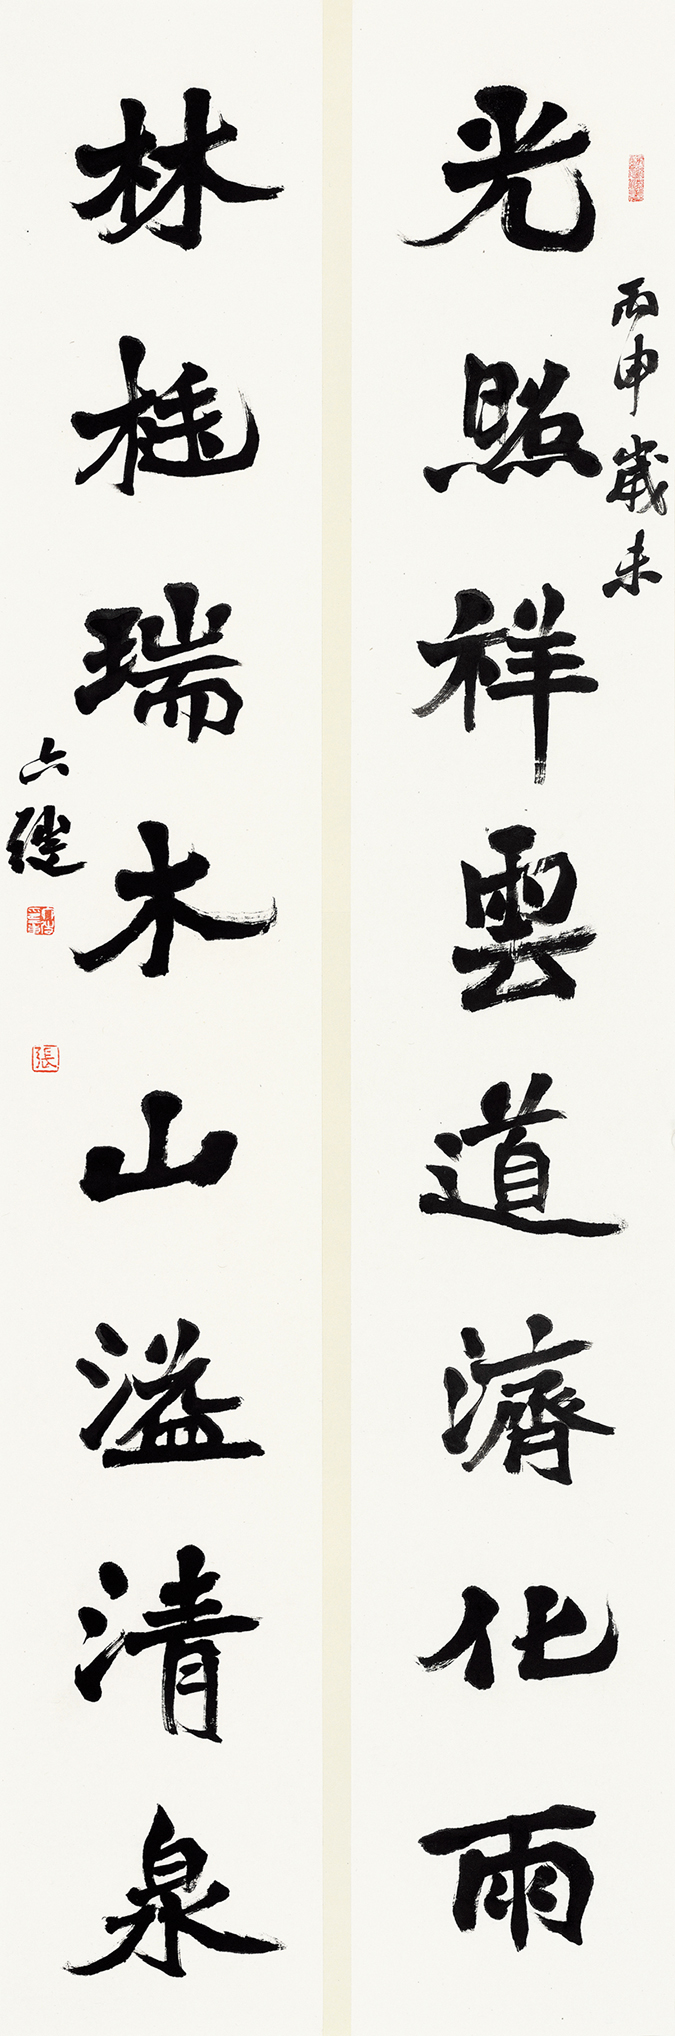 丙申歲末
光照祥雲道濟化雨
林挺瑞木山溢清泉
張